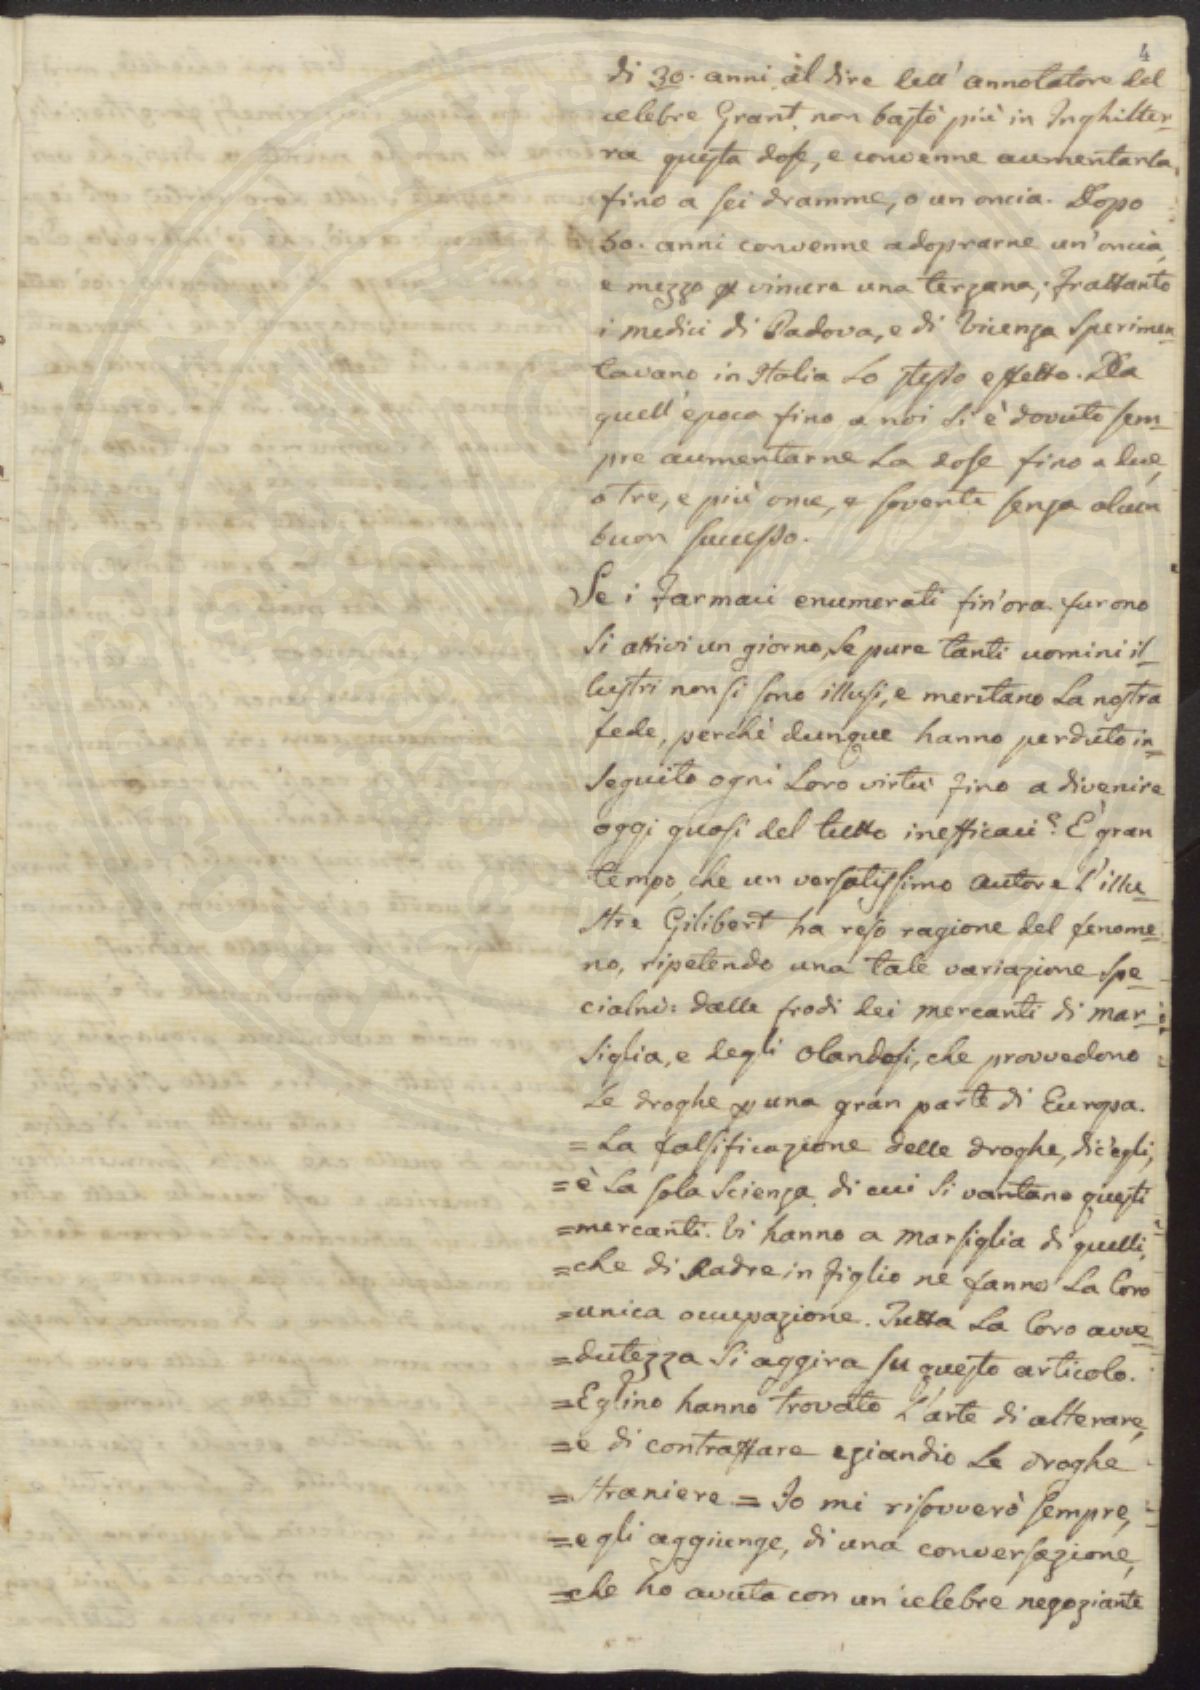 4
di 30. anni, al dire dell' annotatore del
celebre Grant, non bastò più in Inghilter-
ra questa dose, e convenne aumentarla,
fino a sei dramme, o un oncia. Dopo
60. anni convenne adoprarne un' oncia,
e mezzo p vincere una terzana; Frattanto
i medici di Padova, e di Vicenza sperimen-
tavano in Italia lo stesso effetto. Da
quell' epoca fino a noi si è dovuto sem-
pre aumentarne la dose fino a due,
o tre, e più once, e sovente senza alcun
buon successo.
Se i Farmaci enumerati fin' ora furono
sì attivi un giorno, se pure tanti uomini il-
lustri non si sono illusi, e meritano la nostra
fede, perchè dunque hanno perduto in-
seguito ogni loro virtù fino a divenire
oggi quasi del tutto inefficaci? È gran
tempo, che un versatissimo autore l'illu-
stre Gilibert ha reso ragione del fenome-
no, ripetendo una tale variazione spe-
cialm: dalle frodi dei mercanti di mar-
siglia, e degli olandesi, che provvedono
le droghe p una gran parte di Europa.
= La falsificazione delle droghe, dic'egli,
= è la sola scienza, di cui si vantano questi
= mercanti. Vi hanno a marsiglia di quelli,
= che di Padre in figlio ne fanno la loro
= unica occupazione. Tutta la loro avve-
= dutezza si aggira su questo articolo.
= Eglino hanno trovato l'arte di alterare,
= e di contraffare eziandio le droghe
= straniere = Io mi risovverò sempre,
= egli aggiunge, di una conversazione,
= che ho avuta con un celebre negoziante